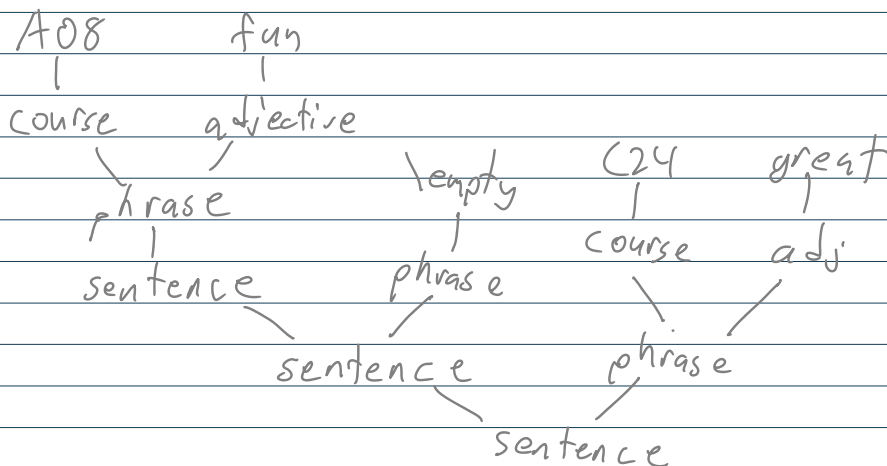 A08 fun
course adjective
\empty C24 great
phrase
course adj
sentence phrase
sentence phrase
sentence